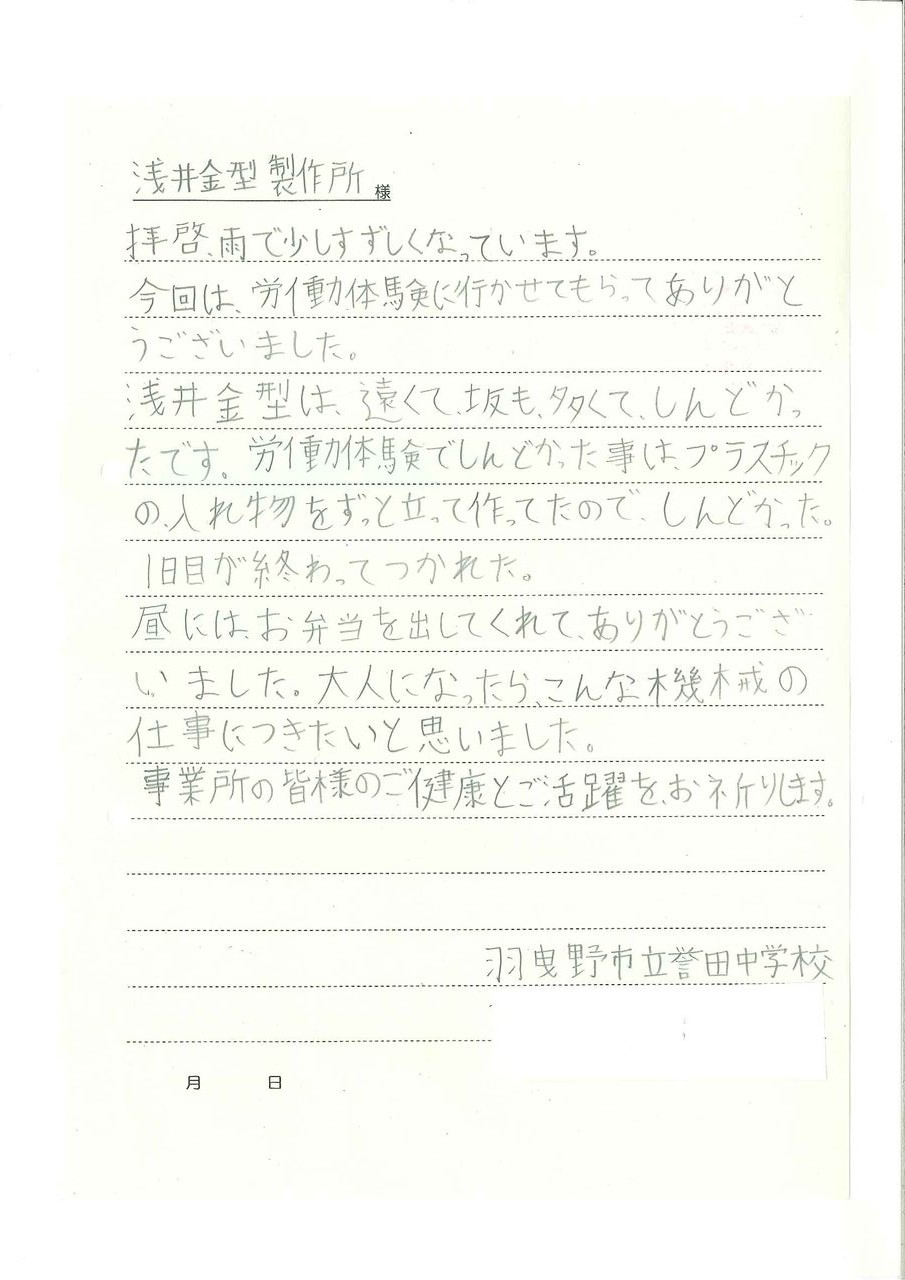 浅井金型製作所 様
拝啓、雨で少しすずしくなっています。
今回は、労働体験に行かせてもらってありがと
うございました。
浅井金型は、遠くて、坂も、多くて、しんどかっ
たです。労働体験でしんどかった事は、プラスチック
の、入れ物をずっと立って作ってたので、しんどかった。
1日目が終わってつかれた。
昼には、お弁当を出してくれて、ありがとうござ
いました。大人になったら、こんな機械の
仕事につきたいと思いました。
事業所の皆様のご健康とご活躍を、お祈りします。
羽曳野市立誉田中学校
月 日